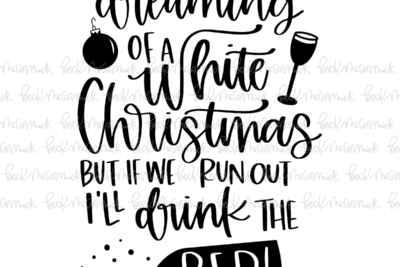 dreaming
OF A
White
Christmas
BUT IF WE RUN OUT
I'LL drink THE
RED!